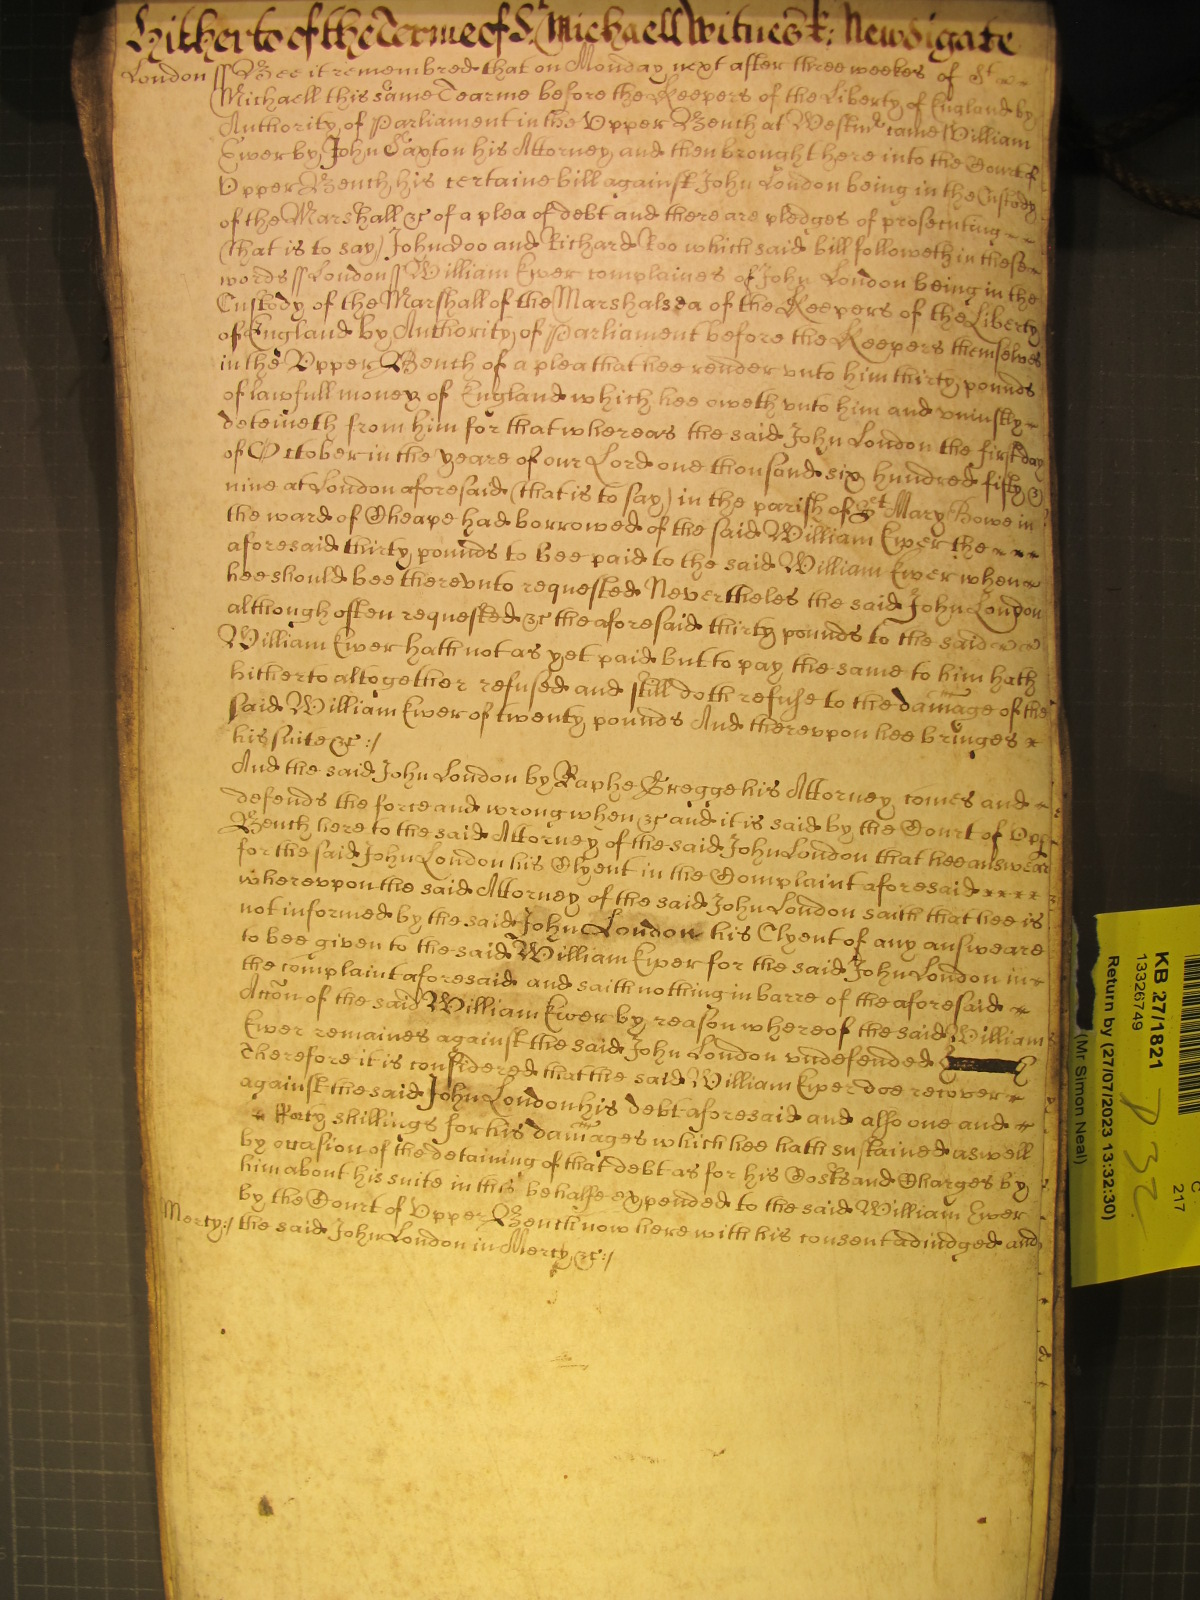 Hitherto of the Terme of St. Michaell Witnes R: Newdigate
London ss Bee it remembred that on Monday next after three weekes of St
Michaell this same Tearme before the Keepers of the Liberty of England by
Authority of Parliament in the Upper Bench at Westmr came William
Ewer by John Saxton his Attorney and then brought here into the Court of
Upper Bench his certaine bill against John London being in the Custody
of the Marshall &c of a plea of debt and there are pledges of prosecuting
(that is to say) John Doo and Richard Roo which said bill followeth in these
words ss London ss William Ewer complaines of John London being in the
Custody of the Marshall of the Marshalsea of the Keepers of the Liberty
of England by Authority of Parliament before the Keepers themselves
in the Upper Bench of a plea that hee render unto him thirty pounds
of lawfull money of England which hee oweth vnto him and vniustly
deteineth from him for that whereas the said John London the first day
of October in the yeare of our Lord one thousand six hundred fifty &
nine at London aforesaid (that is to say) in the parish of St Mary Bowe in
the ward of Cheape had borrowed of the said William Ewer the
aforesaid thirty pounds to bee paid to the said William Ewer when
hee should bee therevnto requested Nevertheles the said John London
although often requested &c the aforesaid thirty pounds to the said
William Ewer hath not as yet paid but to pay the same to him hath
hitherto altogether refused and still doth refuse to the damage of the
said William Ewer of twenty pounds And therevpon hee bringes
his suite &c :/
And the said John London by Raphe Gregge his Attorney comes and
defends the force and wrong when &c and it is said by the Court of Upp
Bench here to the said Attorney of the said John London that hee answear
for the said John London his Clyent in the Complaint aforesaid
wherevpon the said Attorney of the said John London saith that hee is
not informed by the said John London his Clyent of any answeare
to bee given to the said William Ewer for the said John London in
the complaint aforesaid and saith nothing in barre of the aforesaid
Accon of the said William Ewer by reason whereof the said William
Ewer remaines against the said John London vndefended
Therefore it is considered that the said William Ewer doe recover
against the said John London his debt aforesaid and also one and
forty shillings for his damages which hee hath sustained aswell
by occasion of the detaining of that debt as for his Costs and Charges by
him about his suite in this behalfe expended to the said William Ewer
by the Court of Upper Bench now here with his consent adiudged and
Mercy:/ the said John London in Mercy &c :/
KB 27/1821
13326749
Return by (27/07/2023 13:32:30)
(Mr Simon Neal)
C
217